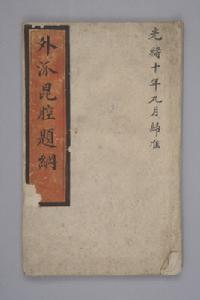 光緒十年九月歸准
外派崑腔題綱